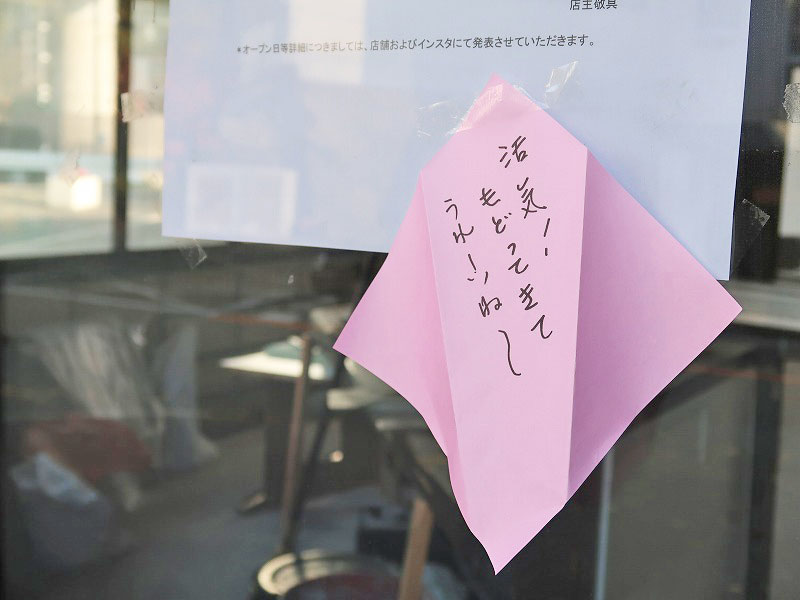 店主敬具
*オープン日等詳細につきましては、店舗およびインスタにて発表させていただきます。
活気!
もどってきて
うれしいねー